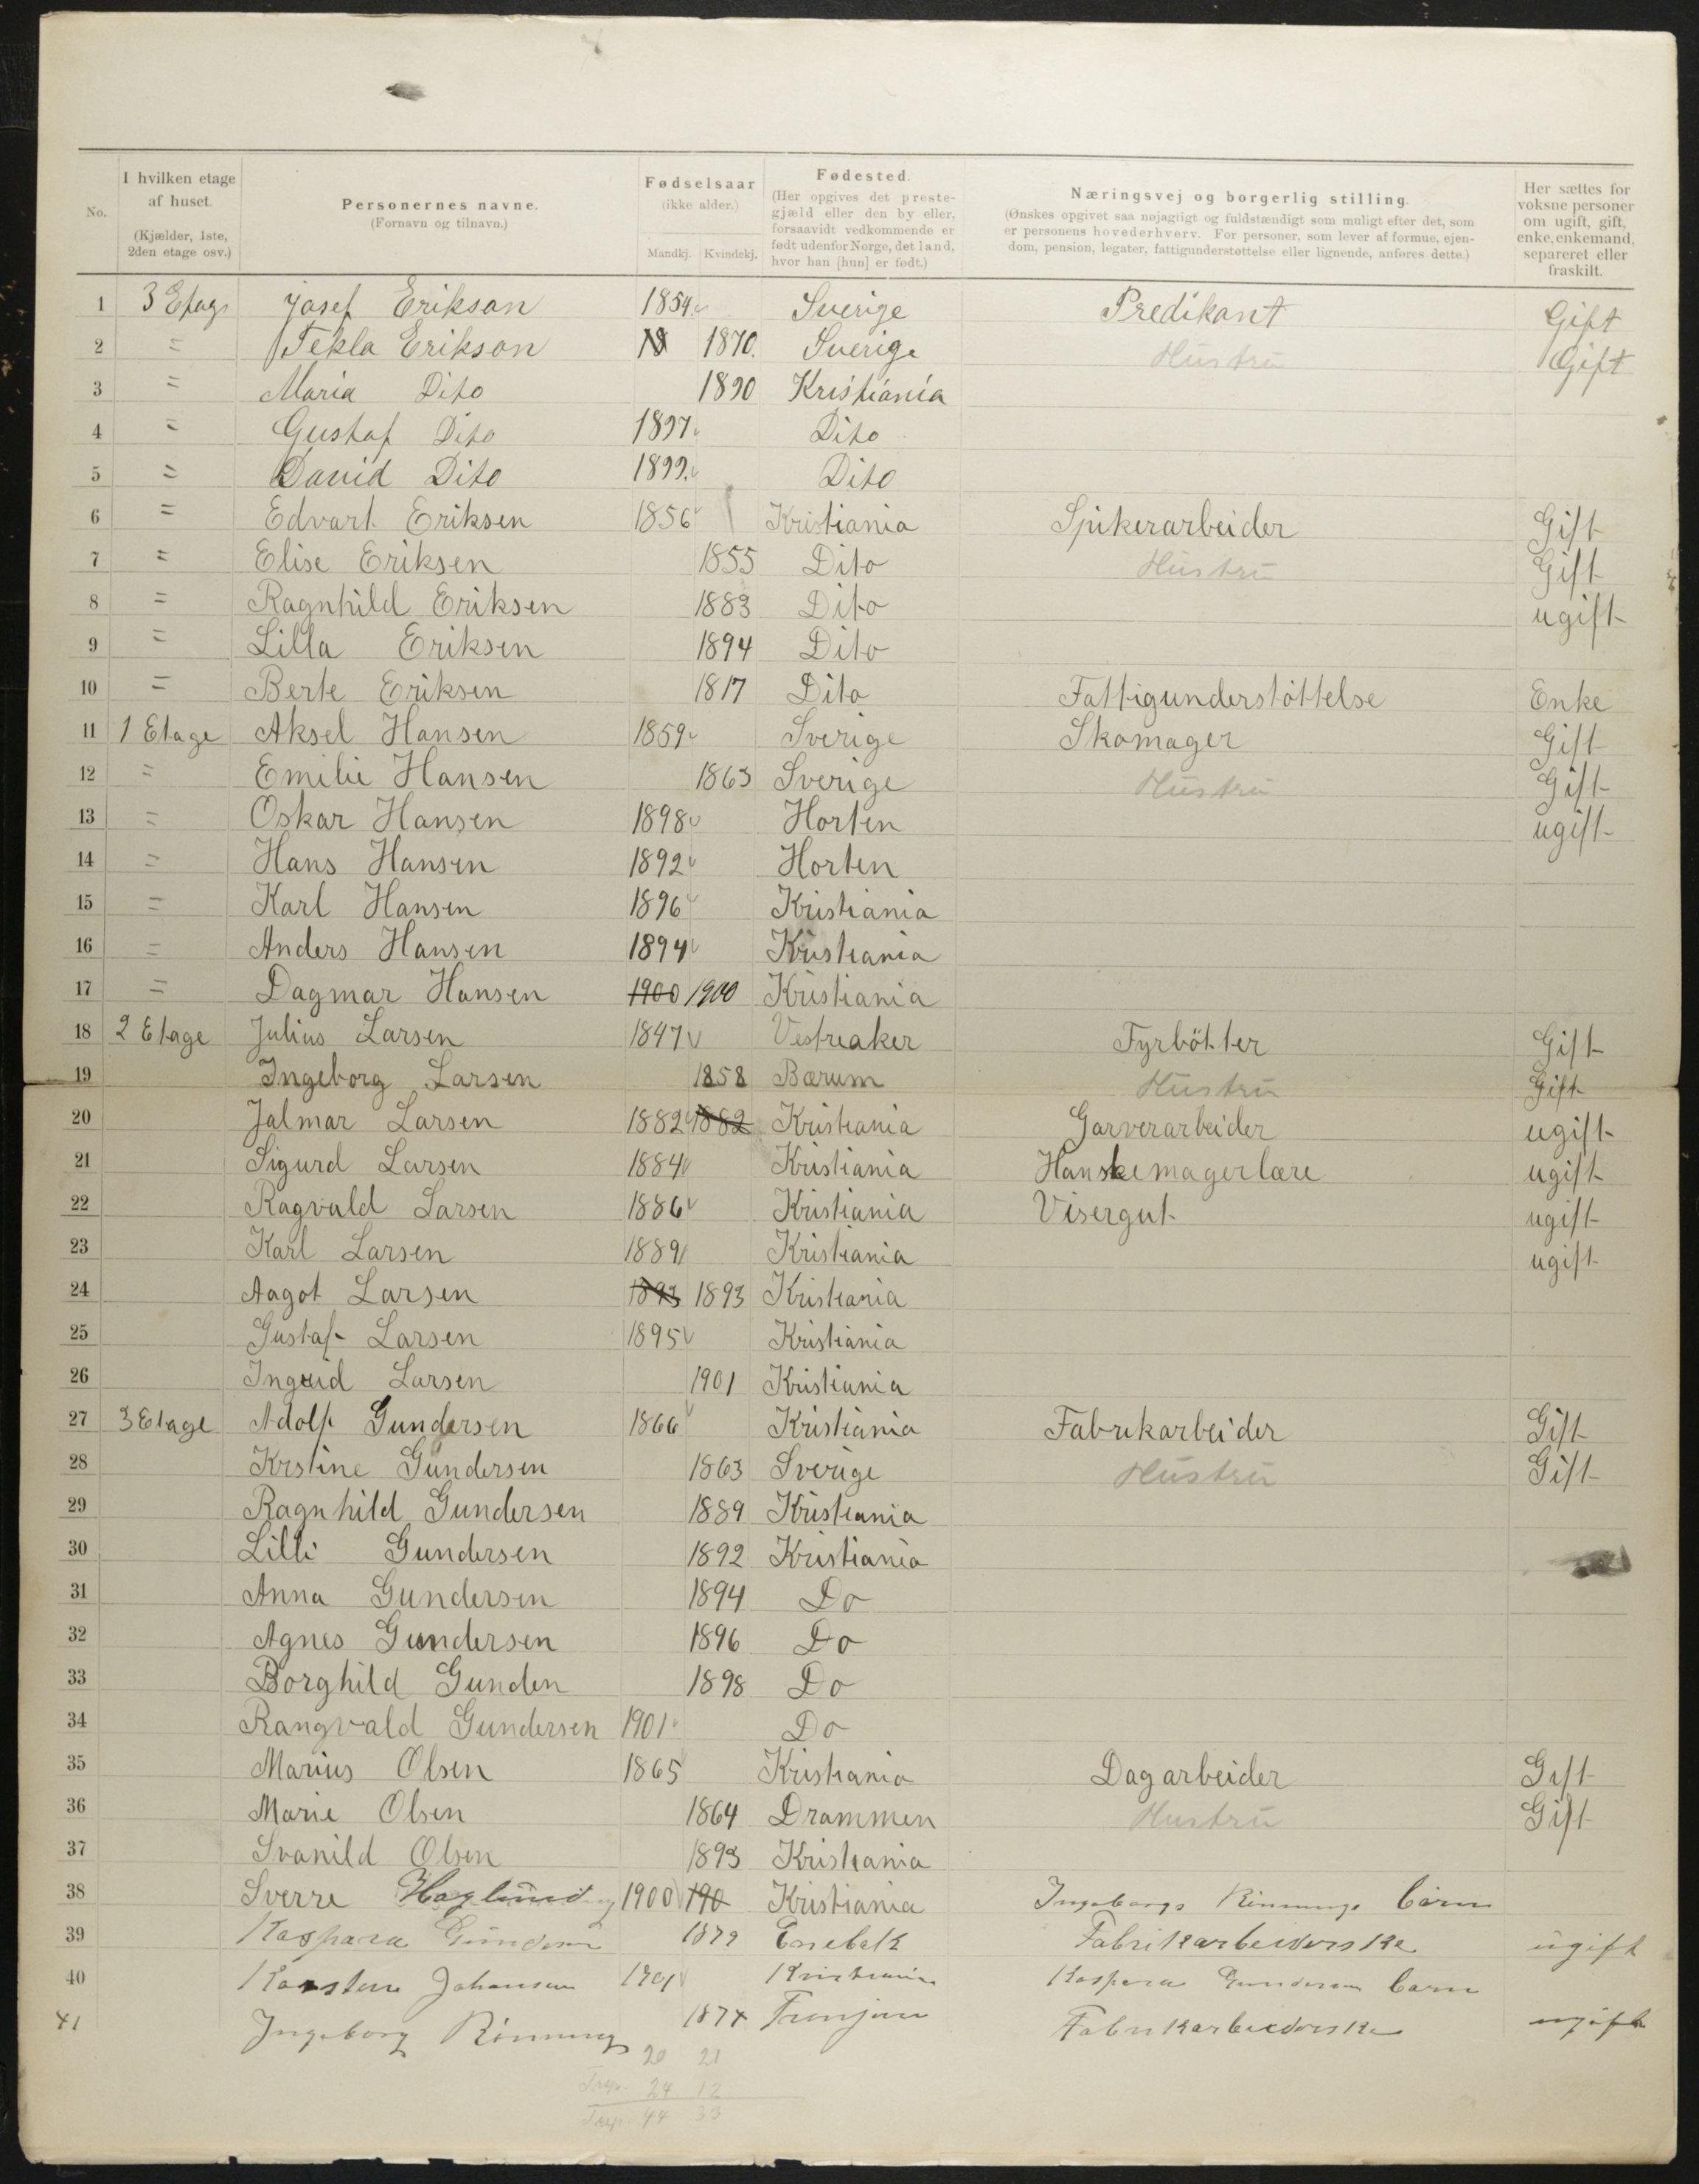 No. I hvilken etage af huset. (Kjælder, 1ste, 2den etage osv.) Personernes navne. (Fornavn og tilnavn.) Fødselsaar (ikke alder.) Mandkj. Kvindekj. Fødested. (Her opgives det prestegjæld eller den by eller, forsaavidt vedkommende er født udenfor Norge, det land, hvor han [hun] er født.) Næringsvej og borgerlig stilling. (Ønskes opgivet saa nøjagtigt og fuldstændigt som muligt efter det, som er personens hovederhverv. For personer, som lever af formue, ejendom, pension, legater, fattigunderstøttelse eller lignende, anføres dette.) Her sættes for voksne personer om ugift, gift, enke, enkemand, separeret eller fraskilt.
1 3 Etage Josef Erikson 1854 Sverige Predikant Gift
2 = Tekla Erikson 18 1870. Sverige Hustru Gift
3 = Maria Dito 1890 Kristiania
4 = Gustaf Dito 1897 Dito
5 = David Dito 1899 Dito
6 = Edvart Eriksen 1856 Kristiania Spikerarbeider Gift
7 = Elise Eriksen 1855 Dito Hustru Gift
8 = Ragnhild Eriksen 1883 Dito ugift
9 = Lilla Eriksen 1894 Dito
10 = Berte Eriksen 1817 Dito Fattigunderstöttelse Enke
11 1 Etage Aksel Hansen 1859 Sverige Skomager Gift
12 = Emilie Hansen 1863 Sverige Hustru Gift
13 = Oskar Hansen 1898 Horten ugift
14 = Hans Hansen 1892 Horten
15 = Karl Hansen 1896 Kristiania
16 = Anders Hansen 1894 Kristiania
17 = Dagmar Hansen 1900 1900 Kristiania
18 2 Etage Julius Larsen 1847 Vestreaker Fyrbötter Gift
19 Ingeborg Larsen 1858 Bærum Hustru Gift
20 Jalmar Larsen 1882 1882 Kristiania Garverarbeider ugift
21 Sigurd Larsen 1884 Kristiania Hanskemagerlære ugift
22 Ragvald Larsen 1886 Kristiania Visergut ugift
23 Karl Larsen 1889 Kristiania ugift
24 Aagot Larsen 1893 1893 Kristiania
25 Gustaf Larsen 1895 Kristiania
26 Ingrid Larsen 1901 Kristiania
27 3 Etage Adolf Gundersen 1866 Kristiania Fabrikarbeider Gift
28 Krstine Gundersen 1863 Sverige Hustru Gift
29 Ragnhild Gundersen 1889 Kristiania
30 Lilli Gundersen 1892 Kristiania
31 Anna Gundersen 1894 Do
32 Agnes Gundersen 1896 Do
33 Borghild Gunden 1898 Do
34 Rangvald Gundersen 1901 Do
35 Marius Olsen 1865 Kristiania Dagarbeider Gift
36 Marie Olsen 1864 Drammen Hustru Gift
37 Svanild Olsen 1893 Kristiania
38 Sverre Haglund 1900 190 Kristiania Ingeborgs Rönnings barn
39 Kaspara Gundersen 1879 Enebak Fabrikarbeiderske ugift
40 Karsten Johansen 1901 Kristiania Kaspara Gundersen barn
41 Ingeborg Rönning 1874 Fabrikarbeiderske ugift
20 21
24 12
44 33